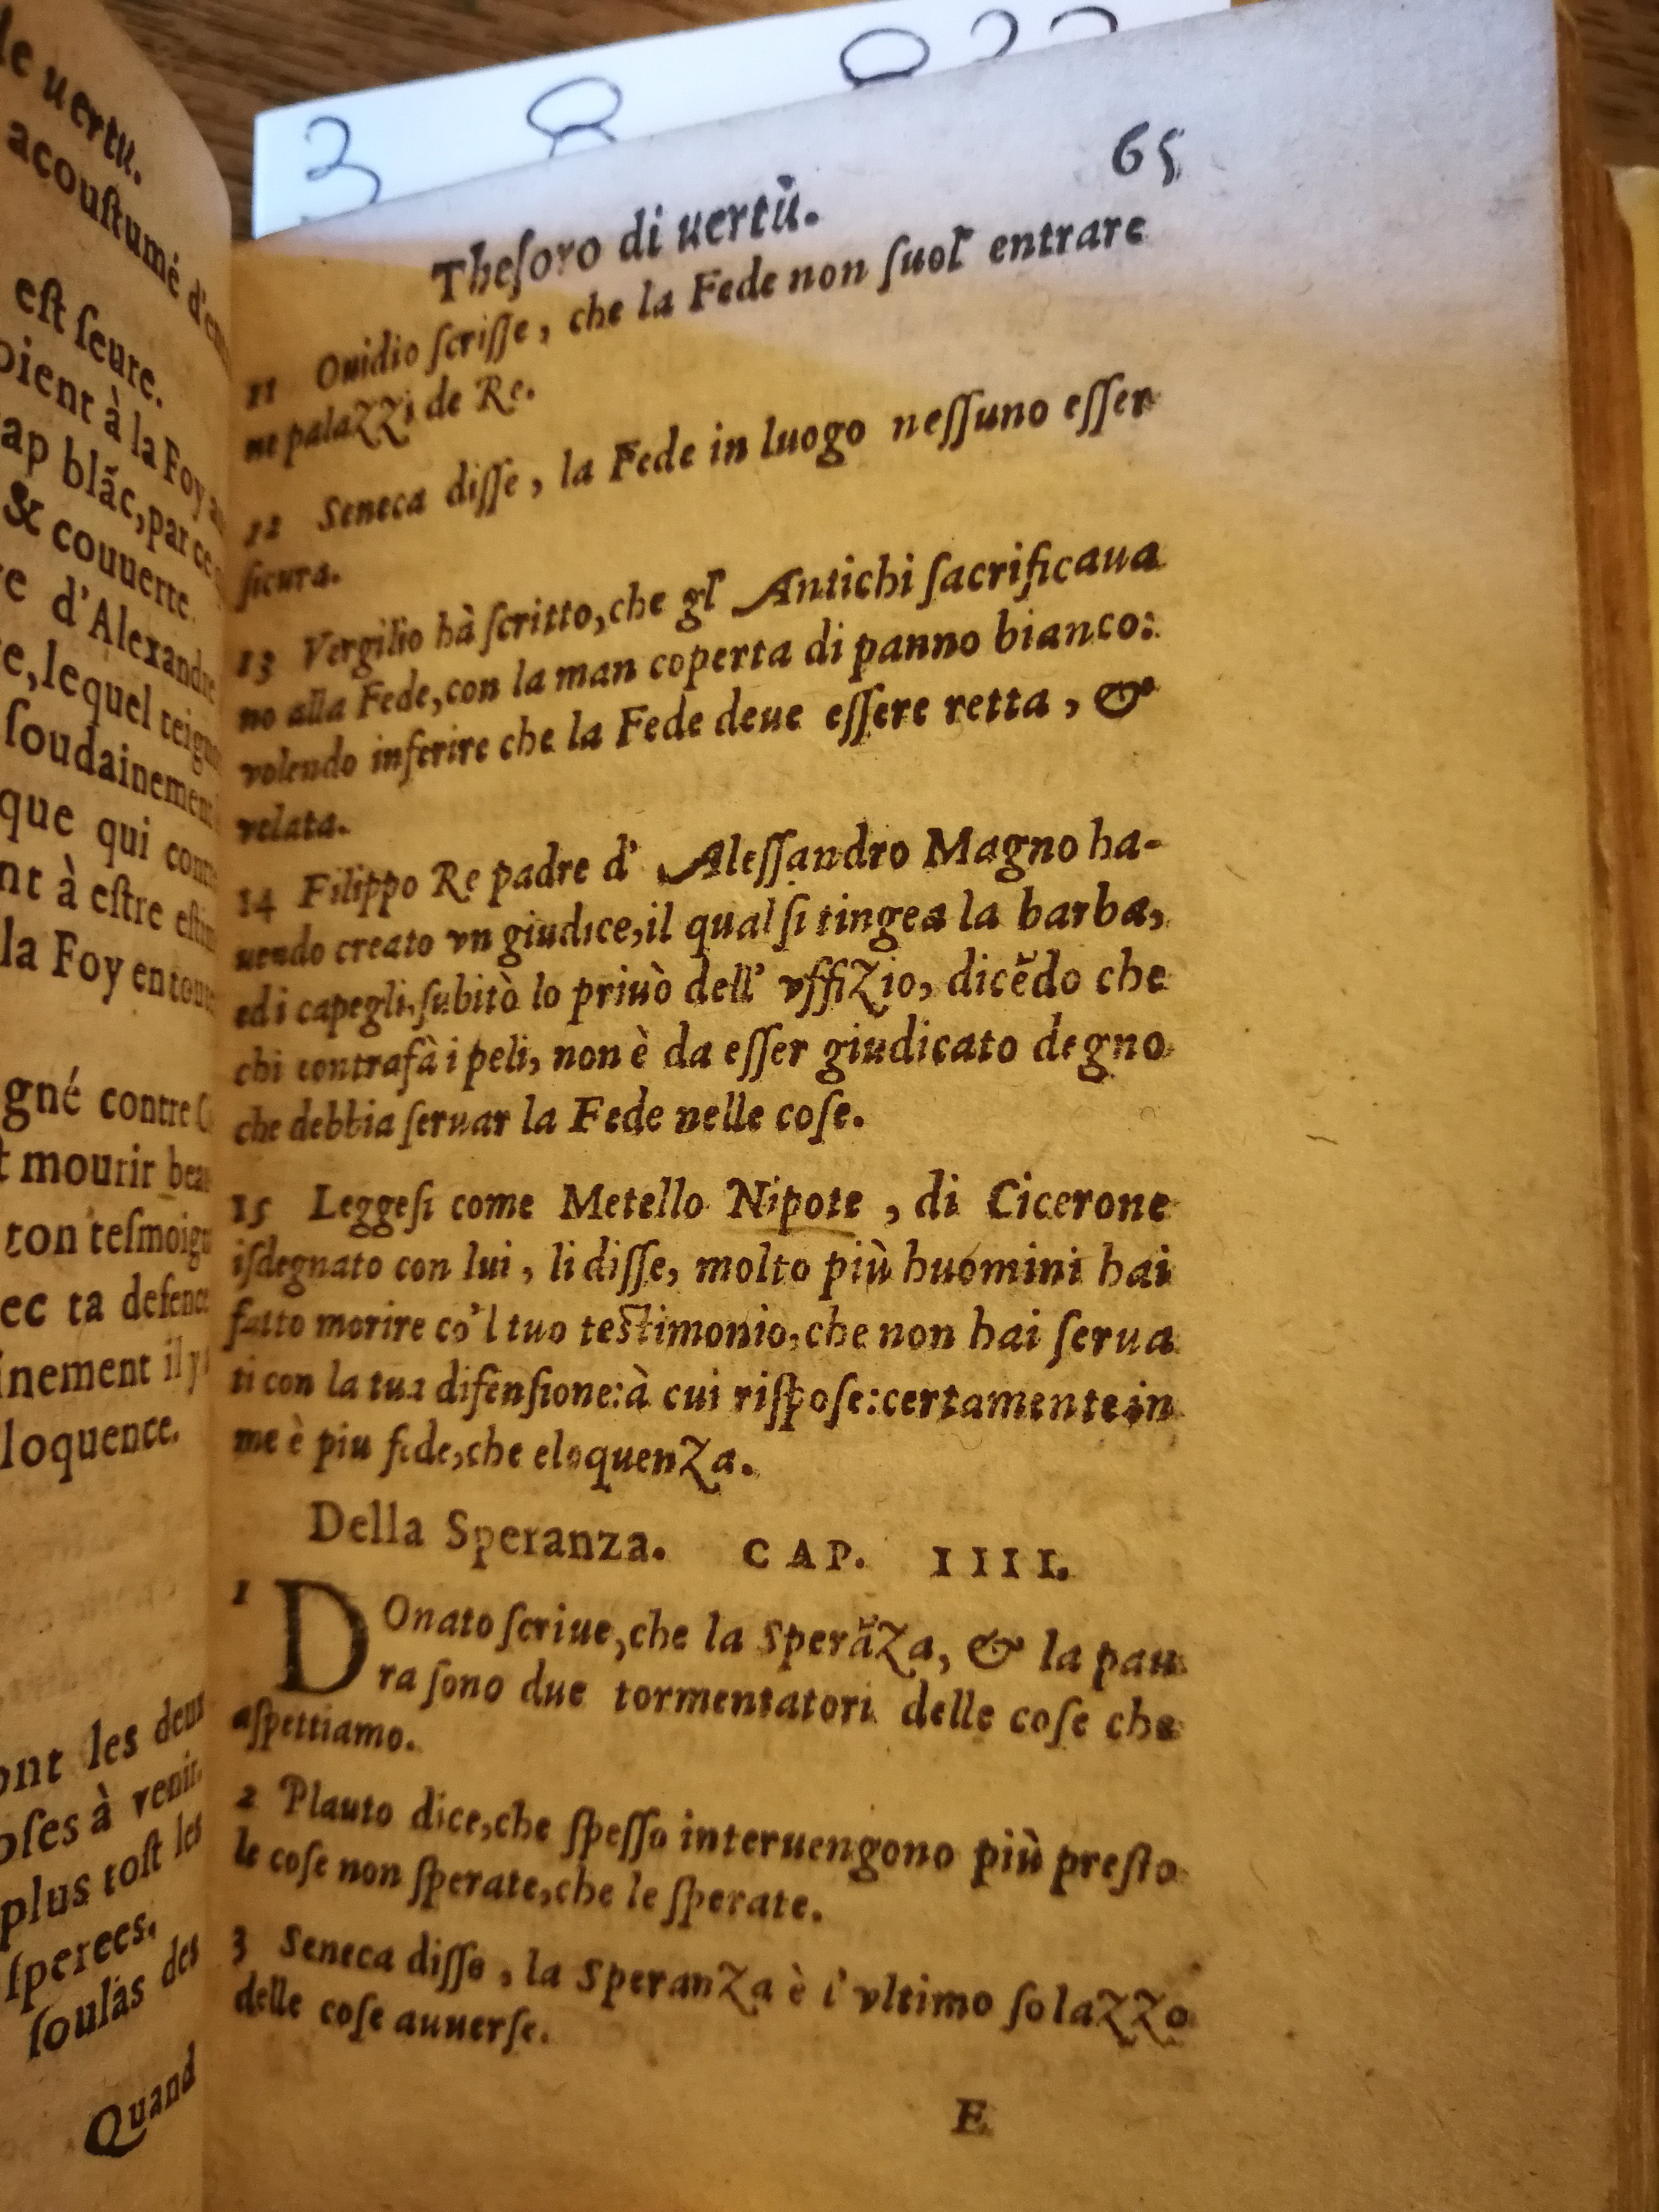 le uertu.
acouſtumé
eſt ſeure.
à la Foy
blãc, par ce
& couuerte.
d'Alexandre
lequel
ſoudainement
que qui
à eſtre
la Foy en
gné contre
mourir
ton teſmoig
ec ta defence
il y
loquence.
ont les deux
à venir.
plus toſt les
ſperees.
ſoulàs des
Quand
3
65
Theſoro di uertù.
11 Ouidio ſcriſſe, che la Fede non ſuol' entrare
ne palazzi de Re.
12 Seneca diſſe, la Fede in luogo neſſuno eſſer
ſicura.
13 Vergilio hà ſcritto, che gl' Antichi ſacrificaua
no alla Fede, con la man coperta di panno bianco:
volendo inferire che la Fede deue eſſere retta, &
velata.
14 Filippo Re padre d' Aleſſandro Magno ha-
uendo creato vn giudice, il qual ſi tingea la barba,
ed i capegli, ſubitò lo priuò dell' vffizio, dicẽdo che
chi contrafà i peli, non è da eſſer giudicato degno
che debbia ſeruar la Fede nelle coſe.
15 Leggeſi come Metello Nipote, di Cicerone
iſdegnato con lui, li diſſe, molto più huomini hai
fatto morire co'l tuo teſtimonio, che non hai ſerua
ti con la tua difenſione: à cui riſpoſe: certamente in
me è piu fede, che eloquenza.
Della Speranza. CAP. IIII.
1 DOnato ſcriue, che la Sperãza, & la pau
ra ſono due tormentatori delle coſe che
aſpettiamo.
2 Plauto dice, che ſpeſſo interuengono più preſto
le coſe non ſperate, che le ſperate.
3 Seneca diſſe, la Speranza è l'vltimo ſolazzo
delle coſe auuerſe.
E